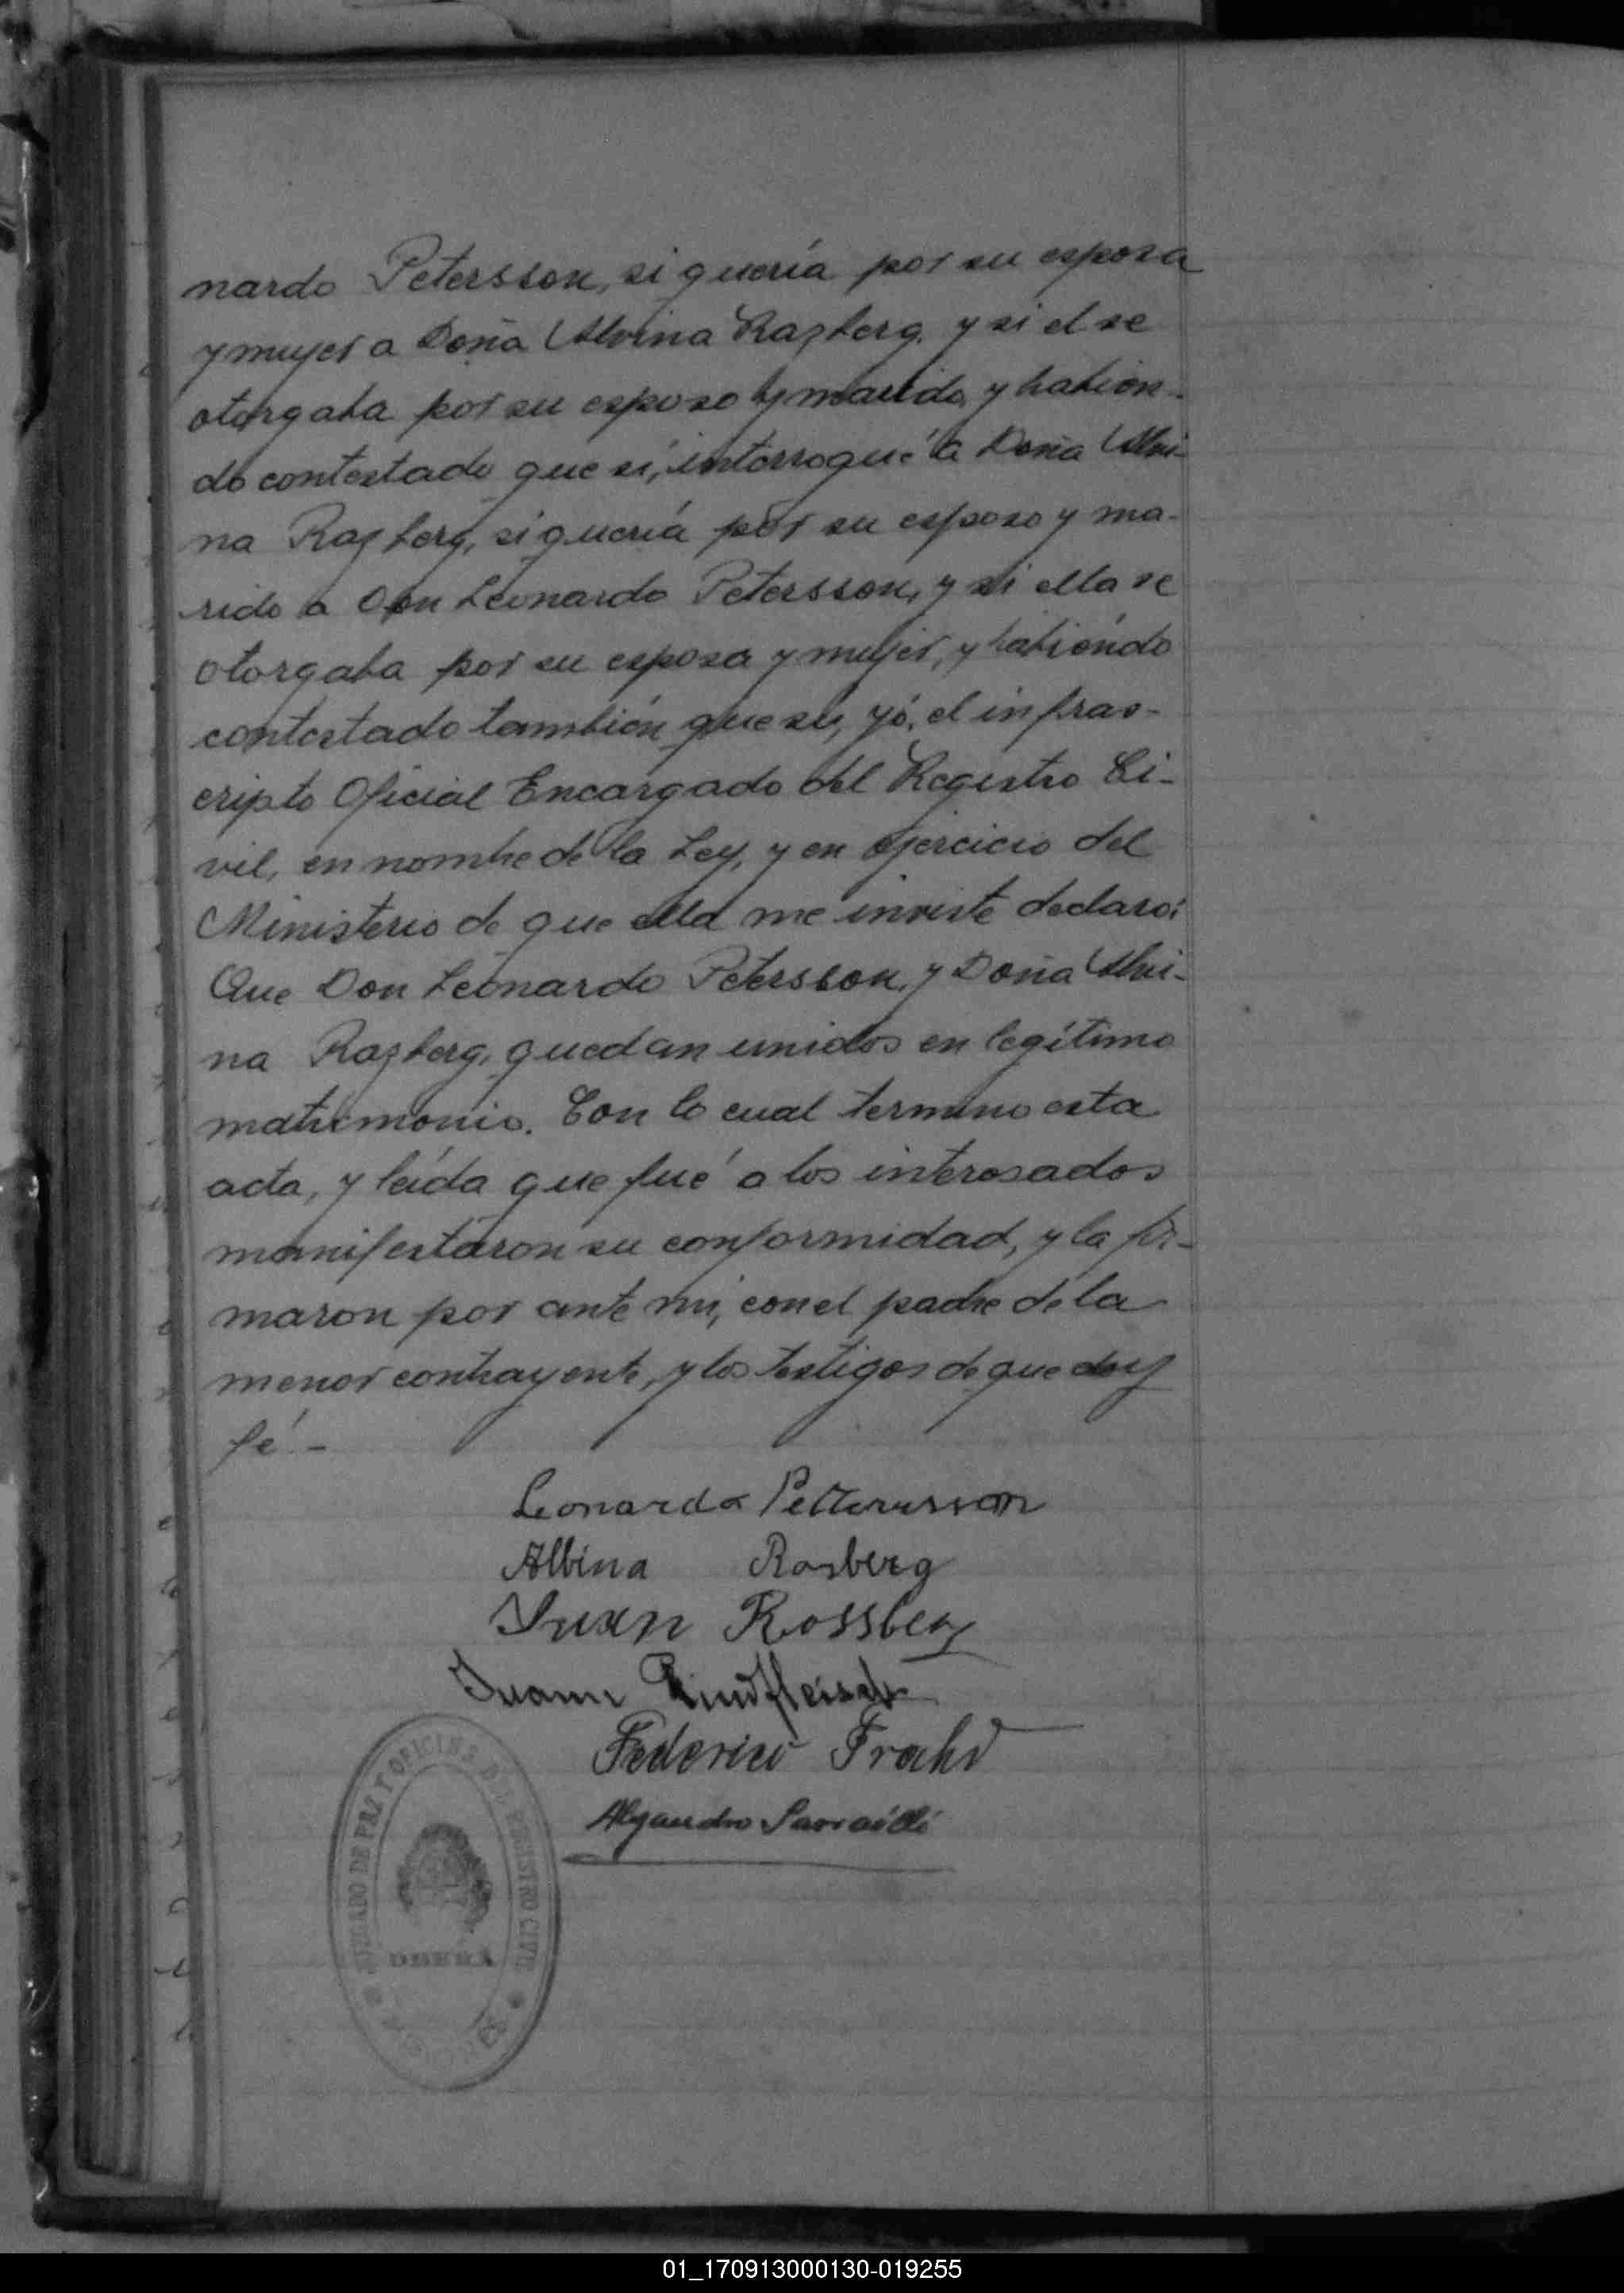 nardo Petersson, si quería por su esposa
y mujer a Doña Alvina Razberg, y si el se
otorgaba por su esposo y marido, y habien-
do contestado que sí, interrogué a Doña Alvi-
na Razberg, si quería por su esposo y ma-
rido a Don Leonardo Petersson, y si ella se
otorgaba por su esposa y mujer, y habiendo
contestado también que si, yó, el infras-
cripto Oficial Encargado del Registro Ci-
vil, en nombre de la Ley, y en ejercicio del
Ministerio de que ella me inviste declaro:
Que Don Leonardo Petersson, y Doña Alvi-
na Razberg, quedan unidos en legítimo
matrimonio. Con lo cual termino esta
acta, y leída que fué a los interesados
manifestaron su conformidad, y la fir-
maron por ante mi, con el padre de la
menor contrayente, y los testigos de que doy
fé.-
Leonardo Pettersson
Albina Rosberg
Juan Rossberg
Juann Rindfleisch
Federico
Alejandro
JUZGADO DE PAZ Y OFICINA DEL REGISTRO CIVIL
OBERÁ
01_170913000130-019255